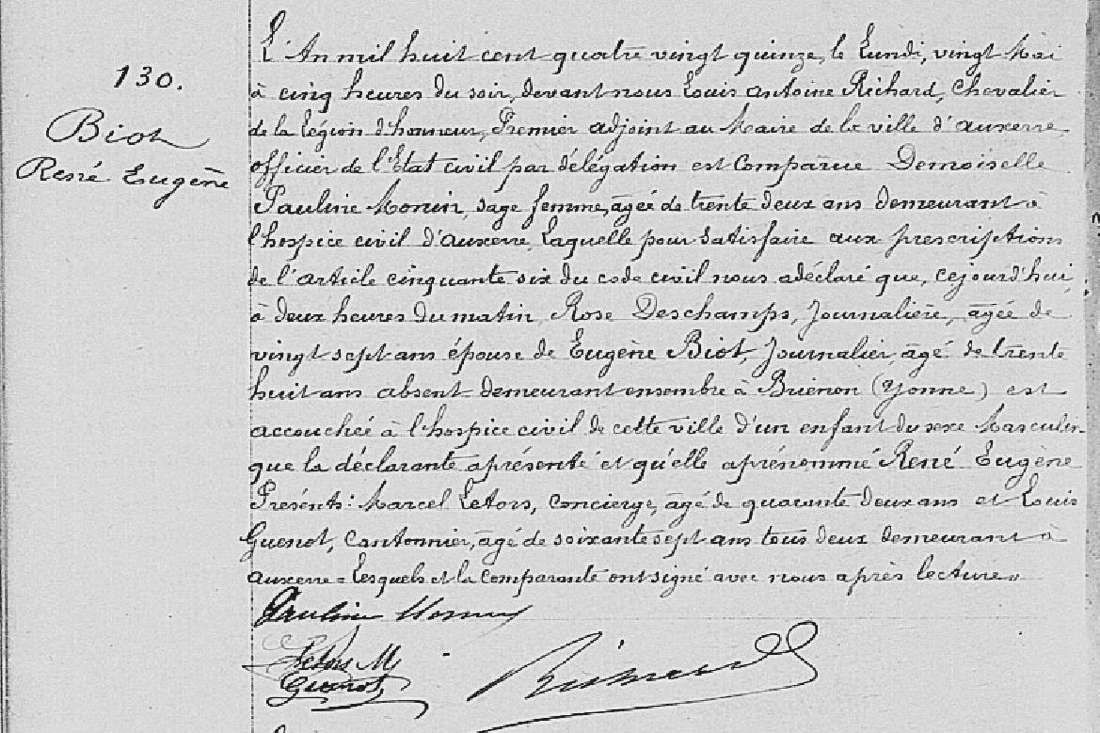 130.
Biot
René Eugène
L'An mil huit cent quatre vingt quinze, le Lundi, vingt Mai
à cinq heures du soir, devant nous Louis Antoine Richard, Chevalier
de la Légion d'honneur, Premier adjoint au Maire de la ville d'auxerre
officier de l'Etat civil par délégation est Comparue Demoiselle
Pauline Monin, sage femme, agée de trente deux ans demeurant à
l'hospice civil d'auxerre, Laquelle pour satisfaire aux prescriptions
de l'article cinquante six du code civil nous a déclaré que, cejourd'hui,
à deux heures du matin, Rose Deschamps, Journalière, agée de
vingt sept ans épouse de Eugène Biot, Journalier, agé de trente
huit ans absent demeurant ensemble à Brienon (Yonne) est
accouchée à l'hospice civil de cette ville d'un enfant du sexe Masculin
que la déclarante a présenté et qu'elle a prénommé René Eugène
Présents: Marcel Letors, concierge, agé de quarante deux ans et Louis
Guenot, Cantonnier, agé de soixante sept ans tous deux demeurant à
auxerre = Lesquels et la Comparante ont signé avec nous après lecture =
Pauline Monin
Letors M
Guenot
Richard